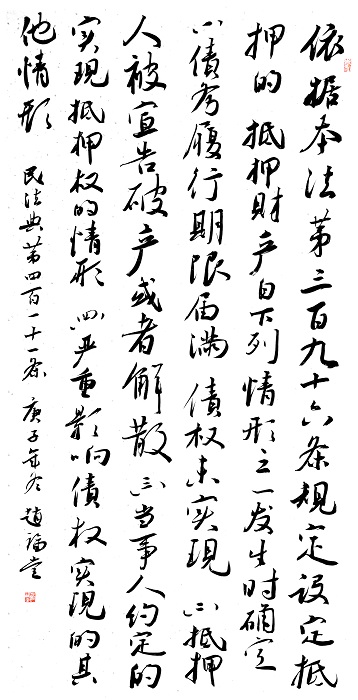 依据本法第三百九十六条規定设定抵
押的抵押財产自下列情形之一发生时确定
㈠債务履行期限届满債权未实現㈡抵押
人被宣告破产或者解散㈢当事人约定的
实現抵押权的情形㈣严重影响債权实現的其
他情形 民法典第四百一十一条 庚子年冬 趙福堂